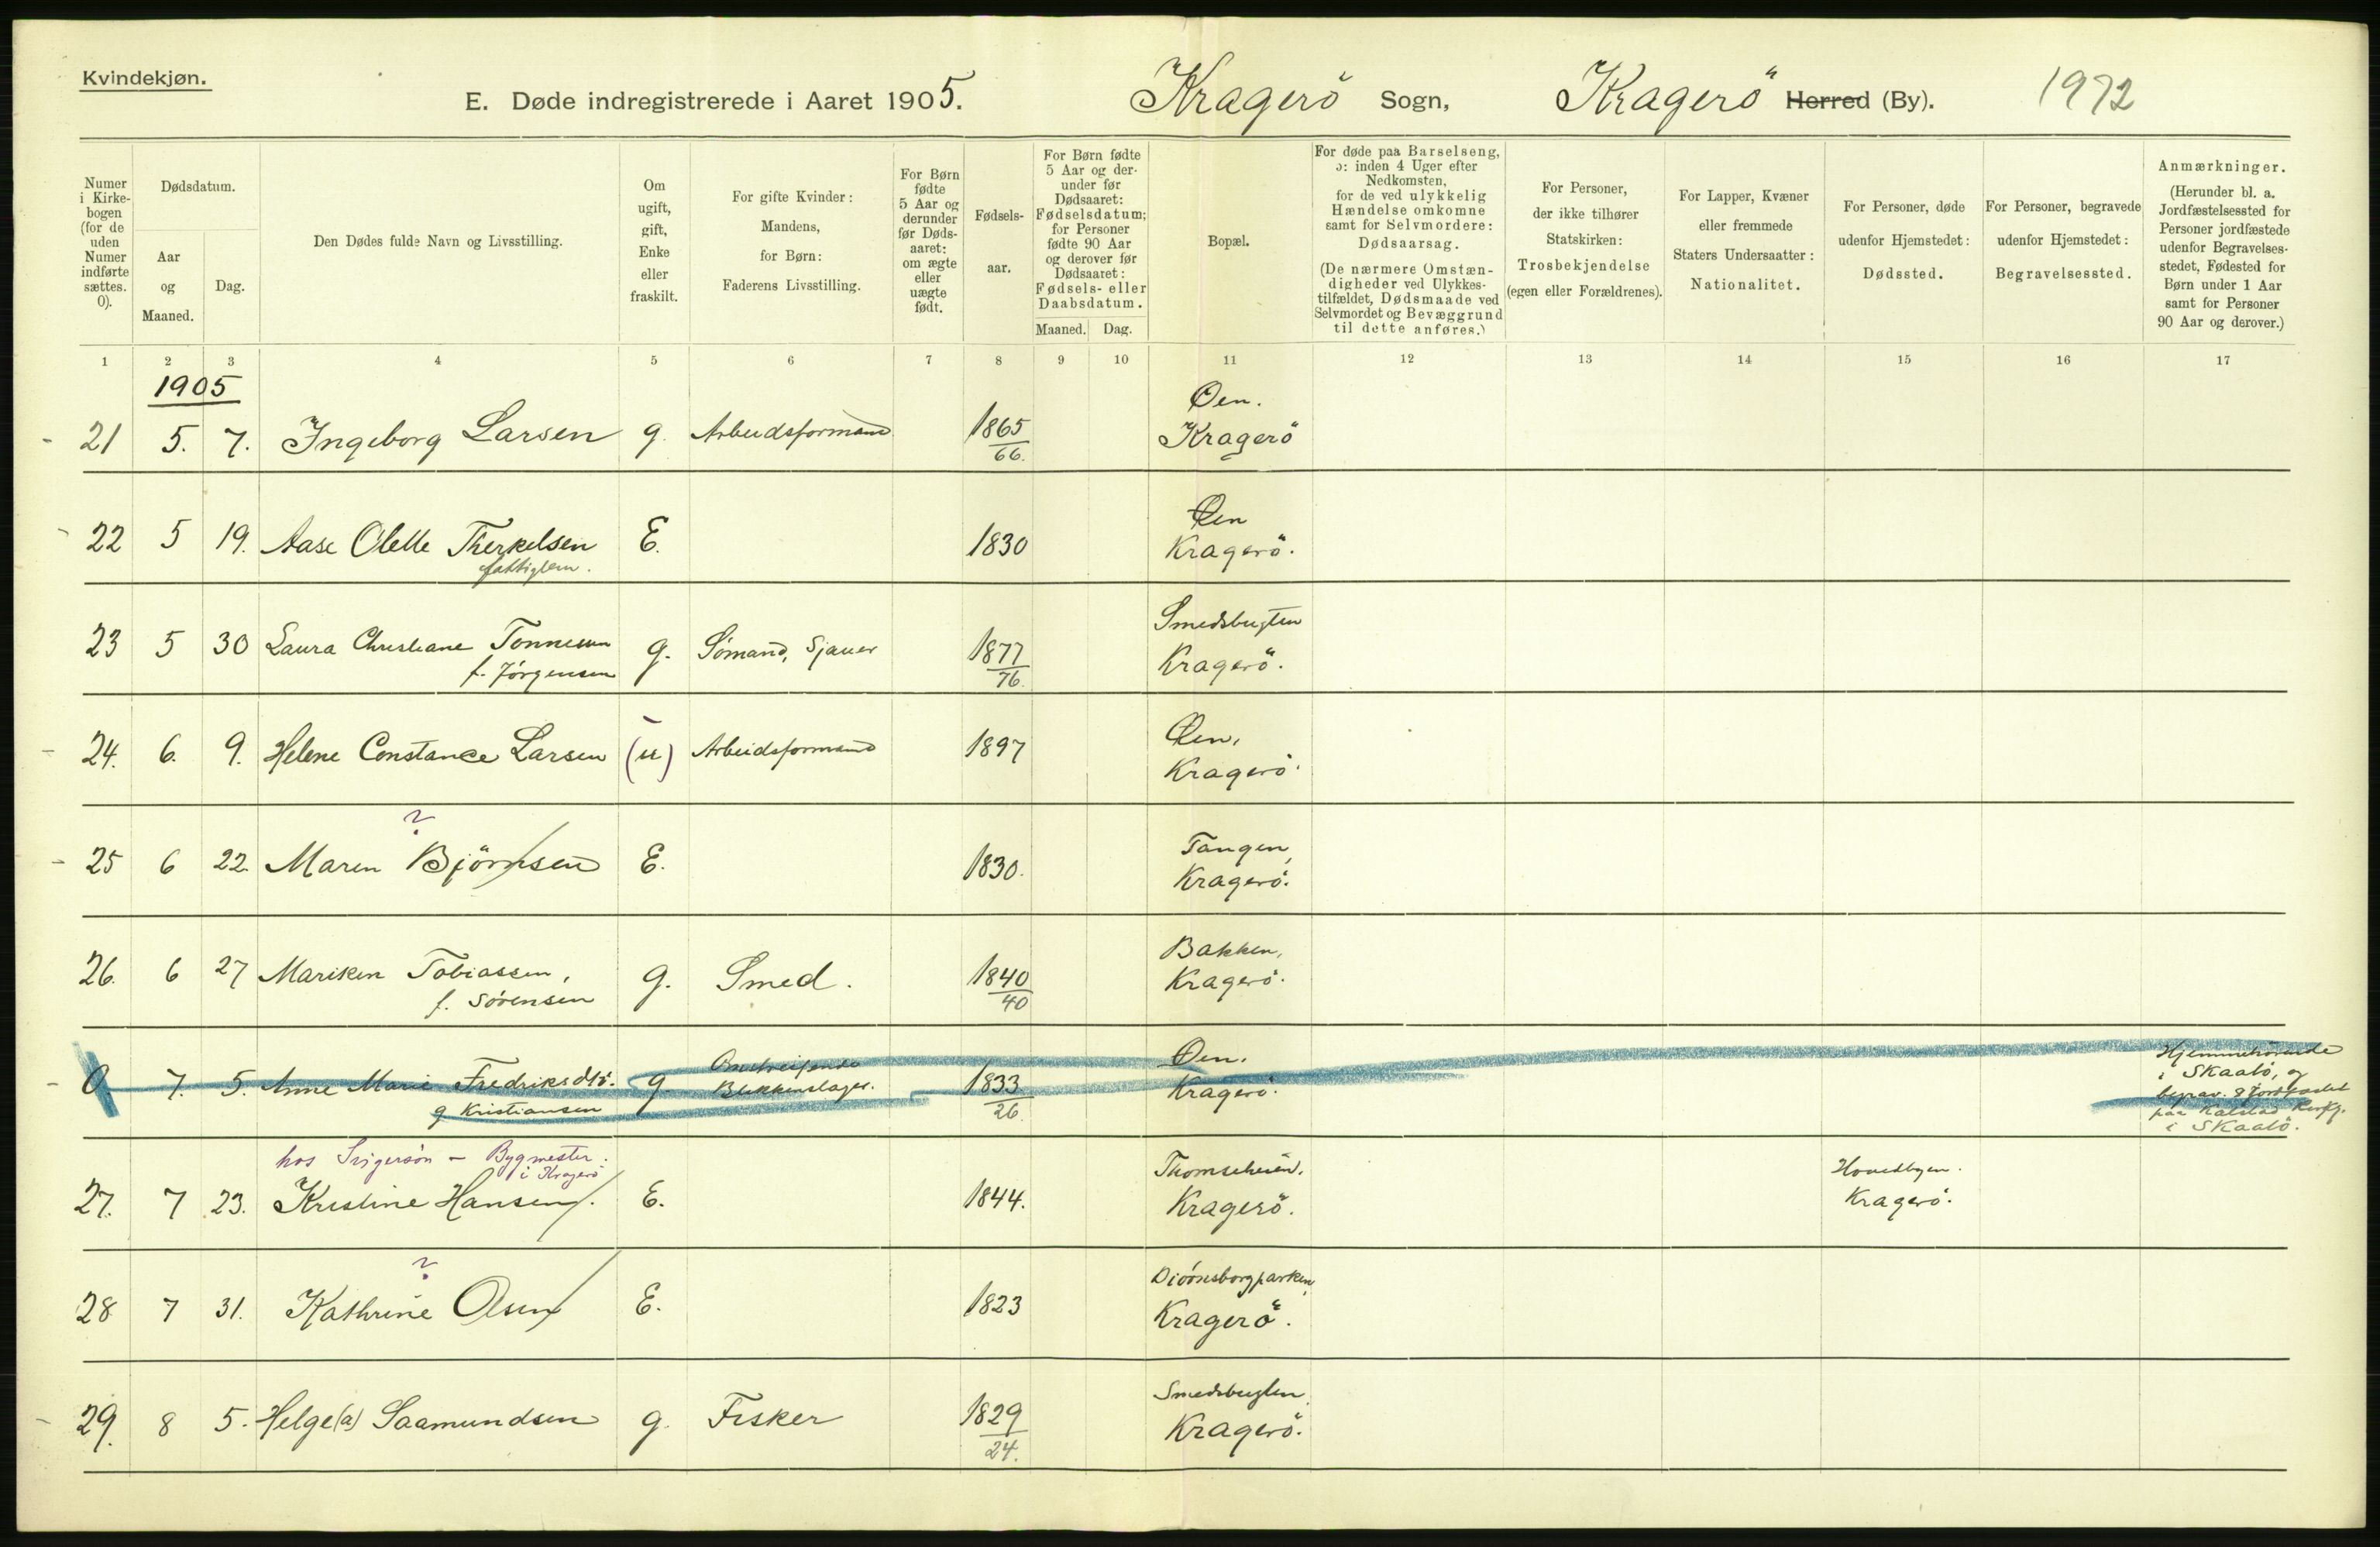 Kvindekjøn.
E. Døde indregistrerede i Aaret 1905. Kragerö Sogn, Kragerö Herred (By). 1972
Numer i Kirkebogen (for de uden Numer indførte sættes. 0).
Dødsdatum.
Aar og Maaned.
Dag.
Den Dødes fulde Navn og Livsstilling.
Om ugift, gift, Enke eller fraskilt.
For gifte Kvinder: Mandens, for Børn: Faderens Livsstilling.
For Børn fødte 5 Aar og derunder før Dødsaaret: om ægte eller uægte født.
Fødselsaar.
For Børn fødte 5 Aar og derunder før Dødsaaret: Fødselsdatum; for Personer fødte 90 Aar og derover før Dødsaaret: Fødsels- eller Daabsdatum.
Maaned. Dag.
Bopæl.
For døde paa Barselseng, ɔ: inden 4 Uger efter Nedkomsten, for de ved ulykkelig Hændelse omkomne samt for Selvmordere: Dødsaarsag.
(De nærmere Omstændigheder ved Ulykkestilfældet, Dødsmaade ved Selvmordet og Bevæggrund til dette anføres.)
For Personer, der ikke tilhører Statskirken: Trosbekjendelse (egen eller Forældrenes).
For Lapper, Kvæner eller fremmede Staters Undersaatter: Nationalitet.
For Personer, døde udenfor Hjemstedet: Dødssted.
For Personer, begravede udenfor Hjemstedet: Begravelsessted.
Anmærkninger.
(Herunder bl. a. Jordfæstelsessted for Personer jordfæstede udenfor Begravelsesstedet, Fødested for Børn under 1 Aar samt for Personer 90 Aar og derover.)
1 2 3 4 5 6 7 8 9 10 11 12 13 14 15 16 17
1905
21 5. 7. Ingeborg Larsen g. Arbeidsformand 1865 66. Øen. Kragerö
22 5 19. Aase Olette Therkelsen E. 1830 Øen Kragerö.
fattiglem.
23 5 30 Laura Christiane Tonnesen g. Sömand, Sjauer 1877 76. Smedsbugten Kragerö.
f. Jörgensen
24. 6. 9. Helene Constance Larsen (u) Arbeidsformand 1897 Øen, Kragerö.
?
25 6 22. Maren Björnsen E. 1830. Tangen, Kragerö.
26. 6 27 Mariken Tobiassen, g. Smed. 1840 40 Bakken, Kragerö.
f. Sörensen
0 7. 5. Anne Marie Fredriksdtr. g Omstreifende Blikkenslager. 1833 26. Øen. Kragerö. Hjemmehörende i Skaatö, og begrav. & Jordfæstet paa Kalstad Kirkg. i Skaatö.
g Kristiansen
hos Sigersön – Bygmester. i Kragerö
27. 7 23. Kristine Hansen. E. 1844. Thomseheien. Kragerö. Hovedbyen. Kragerö.
?
28 7 31. Kathrine Olsen E. 1823 Kragerö.
29. 8 5. Helge(a) Saamundsen g. Fisker 1829 24. Smedsbugten, Kragerö.